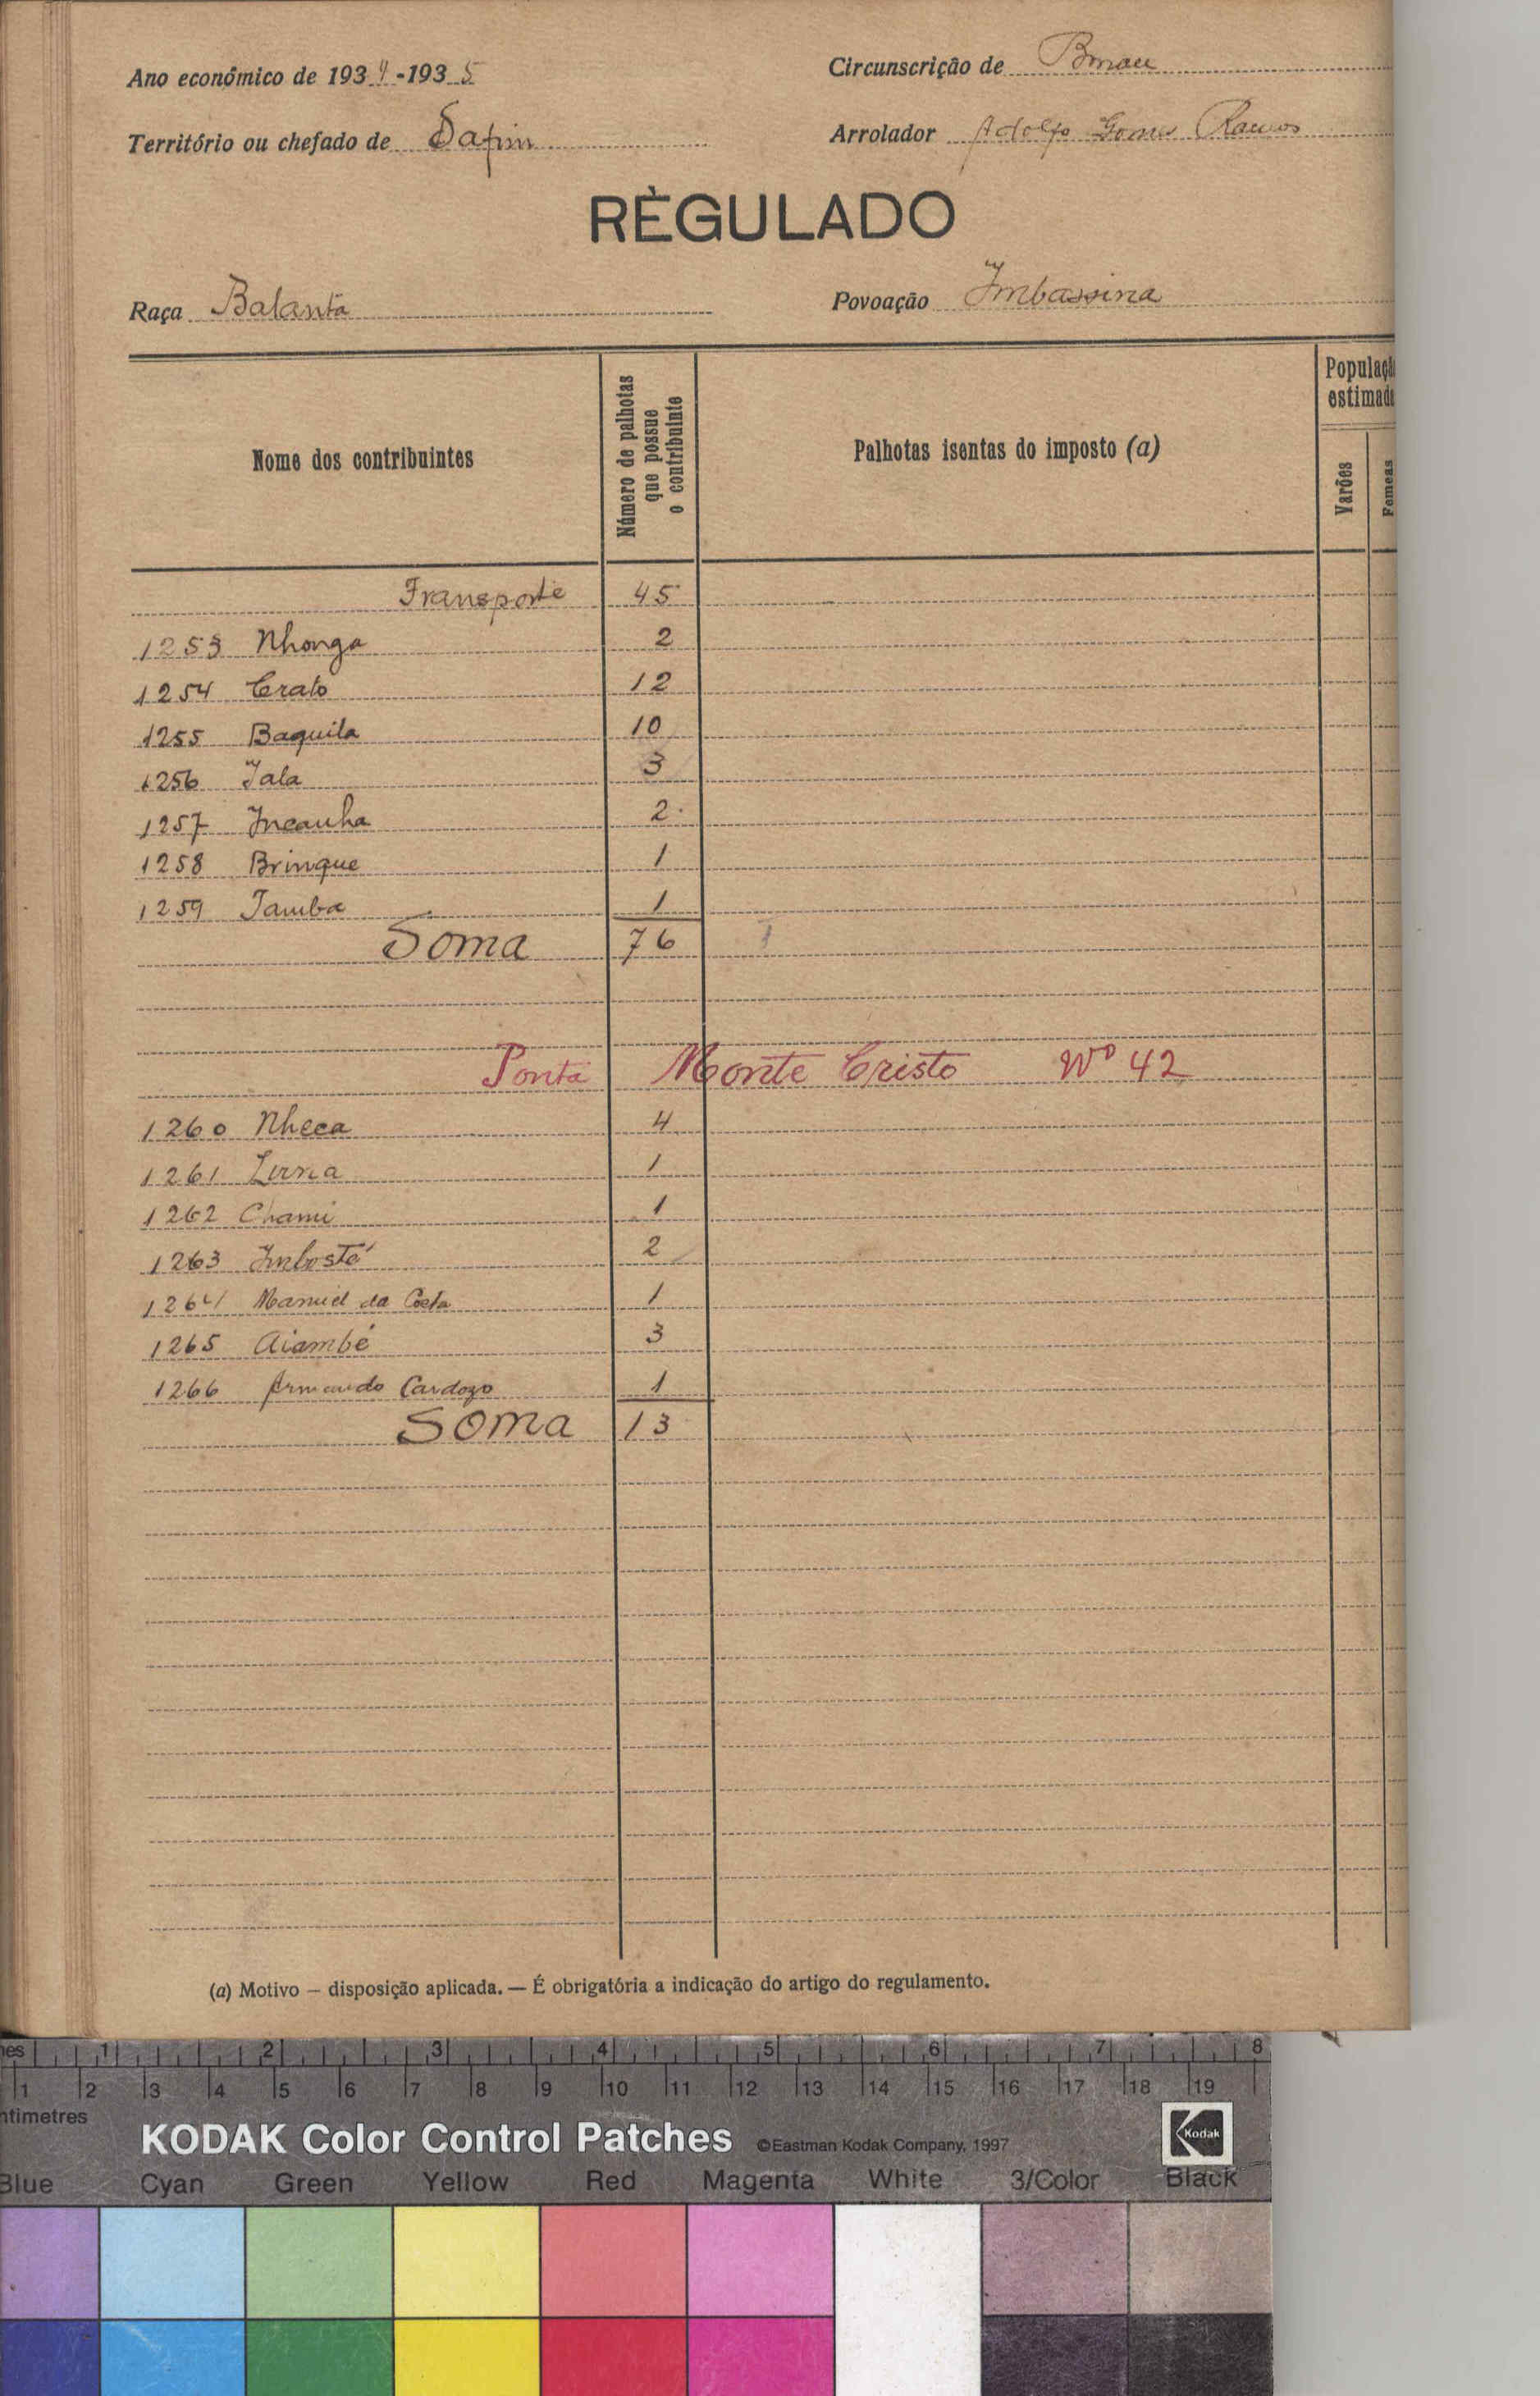 Ano económico de 1934-1935
Circunscrição de
Território ou chefado de Safim
Arrolador Adolfo Gomes Ramos
RÈGULADO
Raça Balanta
Povoação Imbassina
Nome dos contribuintes
Número de palhotas que possue o contribuinte
Palhotas isentas do imposto (a)
Populaçã estimada
Varões
Femeas
Transporte 45
1253 Nhonga 2
1254 Crato 12
1255 Baquila 10
1256 Jala 3
1257 Incanha 2
1258 Brinque 1
1259 Tamba 1
Soma 76
Ponta Monte Cristo Nº 42
1260 Nheca 4
1261 Luna 1
1262 Chami 1
1263 Imbosté 2
1264 Manuel da Costa 1
1265 Aiambé 3
1266 Armando Cardozo 1
Soma 13
(a) Motivo — disposição aplicada. — É obrigatória a indicação do artigo do regulamento.
1 2 3 4 5 6 7 8
1 2 3 4 5 6 7 8 9 10 11 12 13 14 15 16 17 18 19
ntimetres
KODAK Color Control Patches ©Eastman Kodak Company, 1997 Kodak
Blue Cyan Green Yellow Red Magenta White 3/Color Black